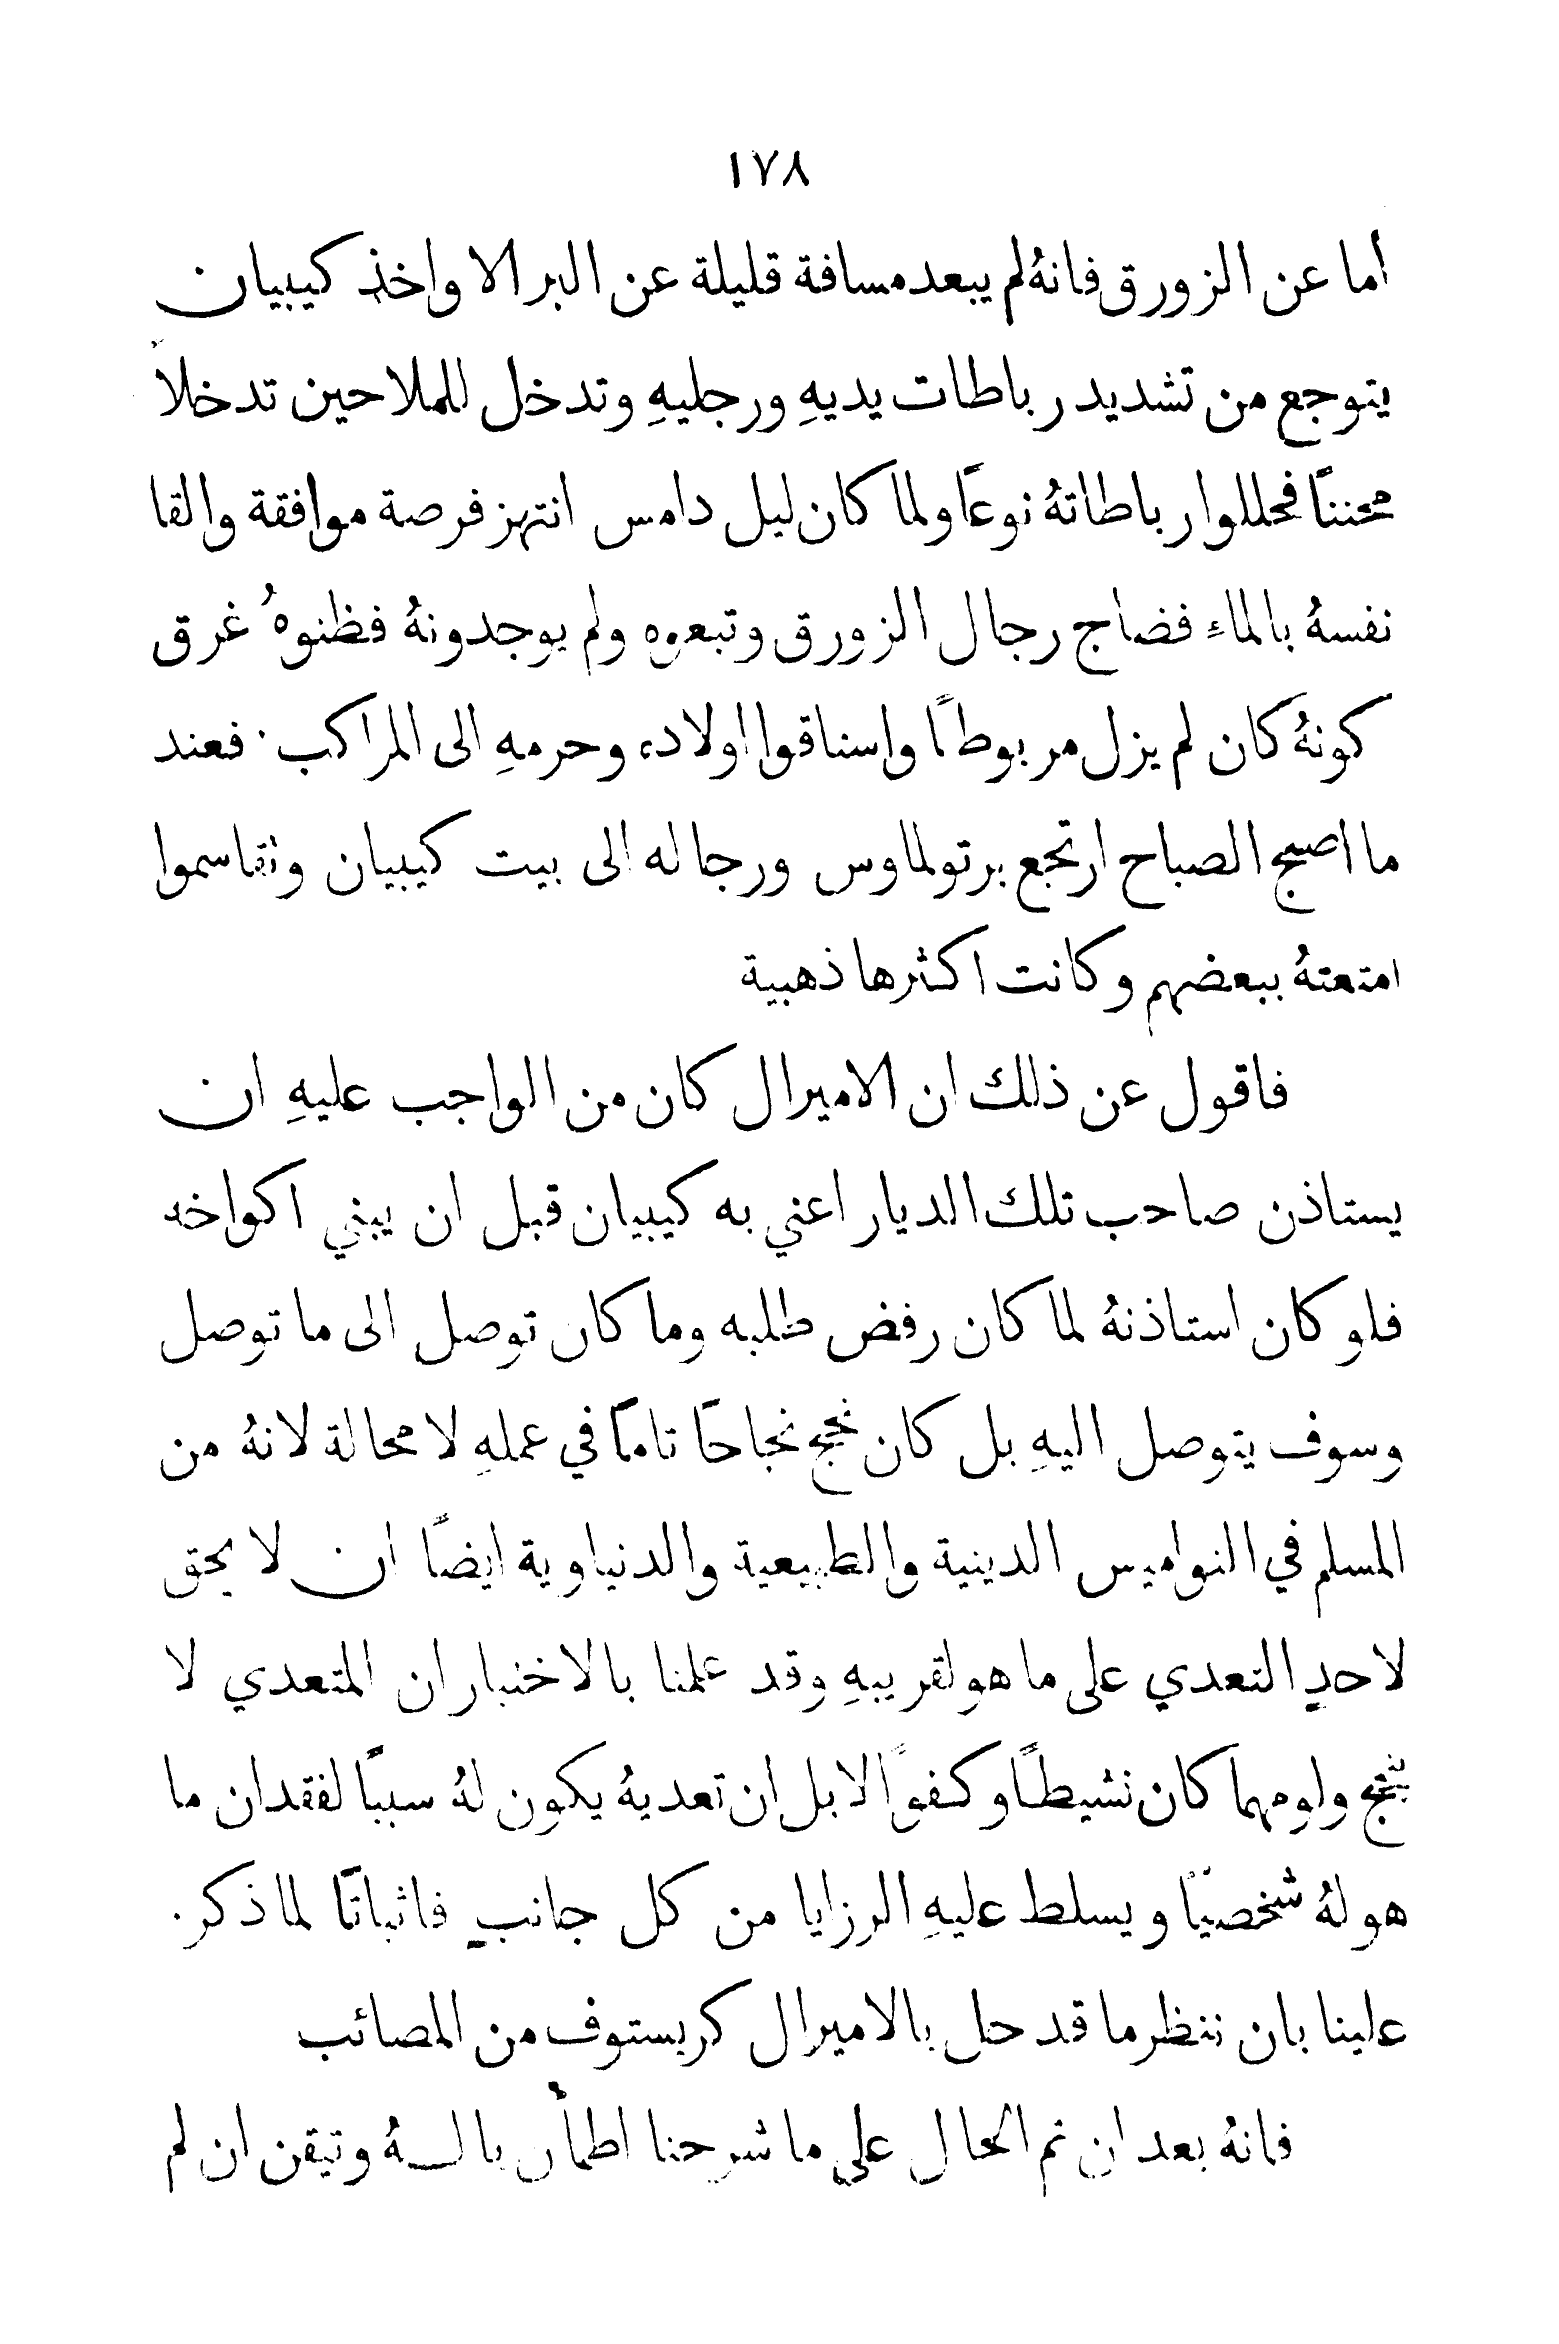 ١٧٨
أما عن الزورق فانهُ لم يبعد مسافة قليلة عن البر الا واخذ كيبيان
يتوجع من تشديد رباطات يديهِ ورجليهِ وتدخل للملاحين تدخلاً
محننًا فحللوا رباطاتهُ نوعًا ولما كان ليل دامس انتهز فرصة موافقة والقا
نفسهُ بالماءِ فضاج رجال الزورق وتبعوه ولم يوجدونهُ فظنوهُ غرق
كونهُ كان لم يزل مربوطًا واستاقوا اولاده وحرمهِ الى المراكب . فعند
ما اصبح الصباح ارتجع برتولماوس ورجاله الى بيت كيبيان وتقاسموا
امتعتهُ ببعضهم وكانت اكثرها ذهبية
فاقول عن ذلك ان الاميرال كان من الواجب عليهِ ان
يستاذن صاحب تلك الديار اعني به كيبيان قبل ان يبني اكواخه
فلو كان استاذنهُ لما كان رفض طلبه وما كان توصل الى ما توصل
وسوف يتوصل اليهِ بل كان نجح نجاحًا تامًا في عملهِ لا محالة لانهُ من
المسلم في النواميس الدينية والطبيعية والدنياوية ايضًا ان لا يحق
لاحدٍ التعدي على ما هو لقريبهِ وقد علمنا بالاختبار ان المتعدي لا
ينجح ولو مهما كان نشيطًا وكفوًا لا بل ان تعديهُ يكون لهُ سببًا لفقدان ما
هو لهُ شخصيًا ويسلط عليهِ الرزايا من كل جانبٍ فاثباتًا لما ذكر .
علينا بان ننظر ما قد حل بالاميرال كريستوف من المصائب
فانهُ بعد ان تم الحال على ما شرحنا اطمأن بالـهُ وتيقن ان لم